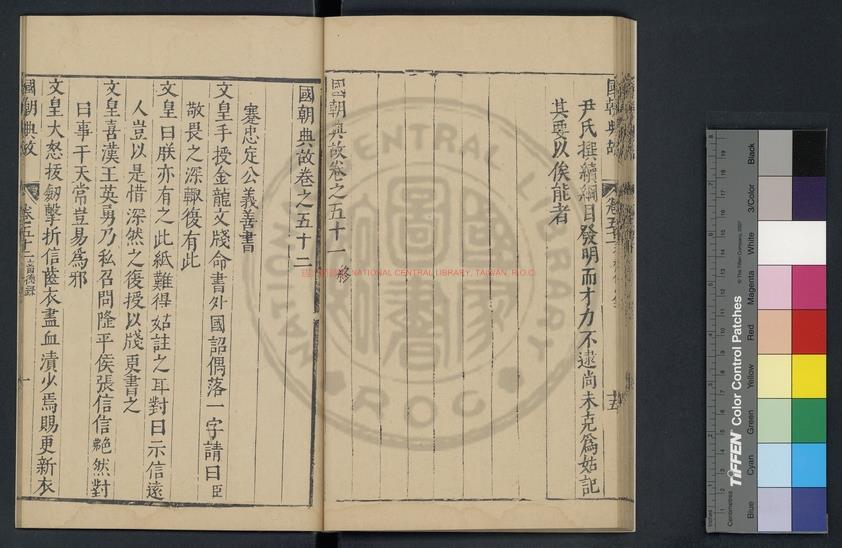 尹氏撰續綱目發明而才力不逮尚未克爲姑記
其要以俟能者
國朝典故卷之五十一 終
國朝典故卷之五十二
蹇忠定公義善書
文皇手授金龍文牋命書外國詔偶落一字請曰臣
敬畏之深輙復有此
文皇曰朕亦有之此紙難得姑註之耳對曰示信遠
人豈以是惜深然之復授以牋更書之
文皇喜漢王英勇乃私召問隆平侯張信信艴然對
曰事干天常豈易爲邪
文皇大怒拔劔擊折信齒衣盡血漬少焉賜更新衣
國朝典故
卷五十二
一
國朝典故
NATIONAL CENTRAL LIBRARY, TAIWAN, R.O.C.
NATIONAL CENTRAL LIBRARY
R.O.C
TIFFEN® Color Control Patches
© The Tiffen Company, 2007
Centimetres
Blue
Cyan
Green
Yellow
Red
Magenta
White
3/Color
Black